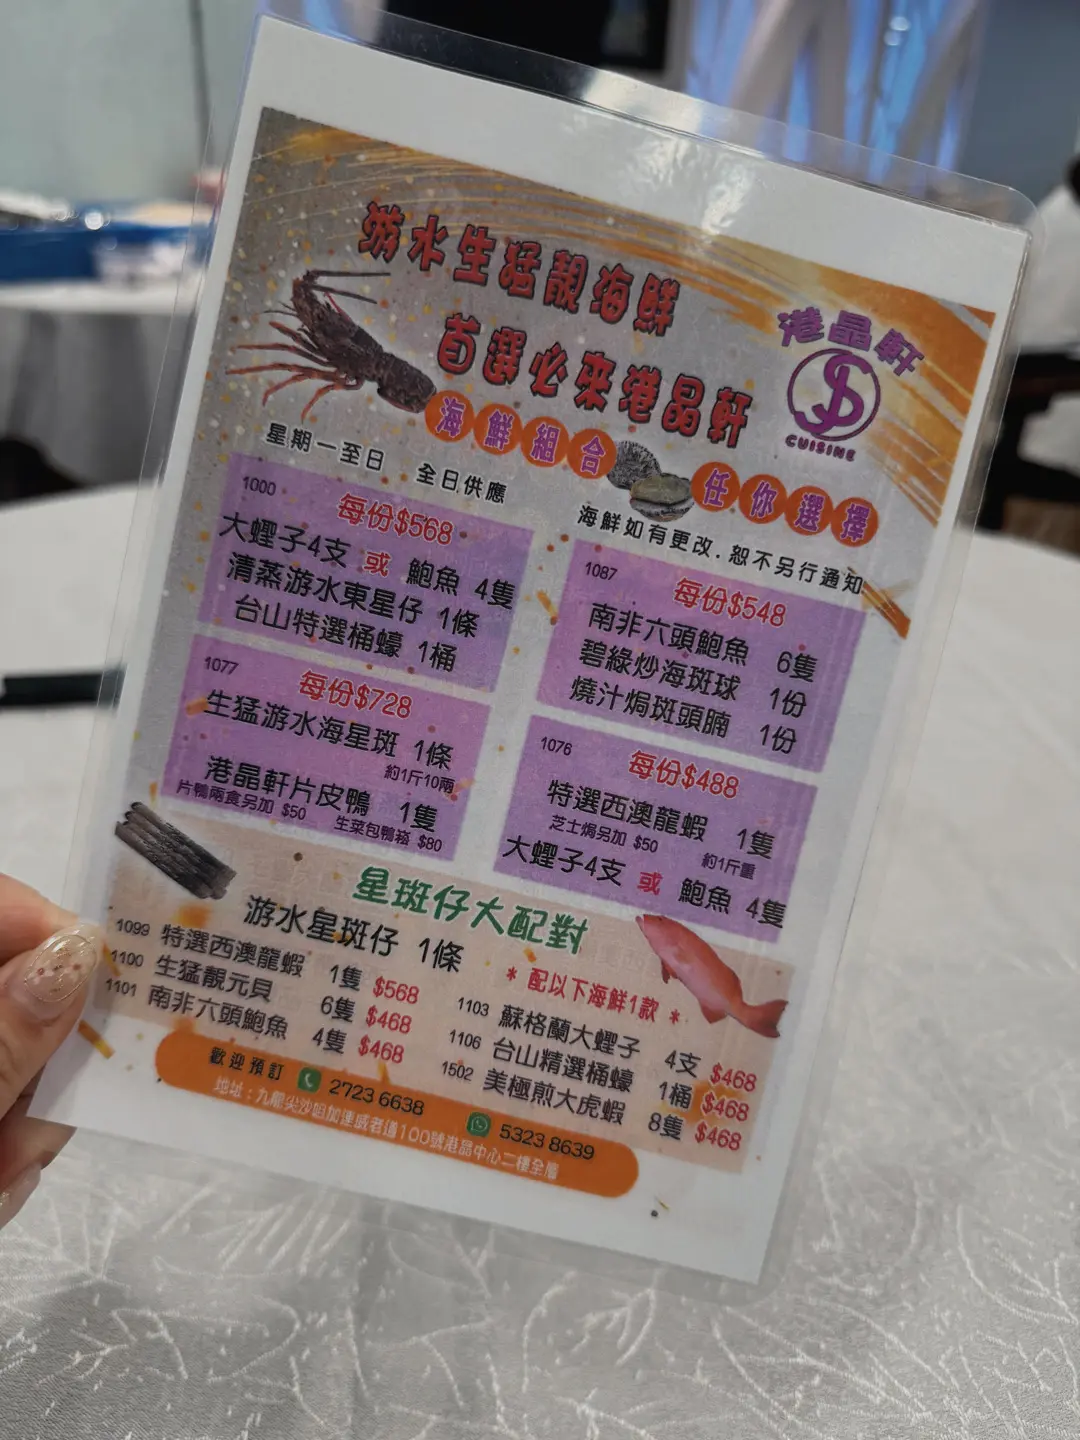 游水生猛靚海鮮
首選必來港晶軒
港晶軒
CUISINE
海鮮組合 任你選擇
星期一至日 全日供應
海鮮如有更改.恕不另行通知
1000
每份$568
大蟶子4支 或 鮑魚 4隻
清蒸游水東星仔 1條
台山特選桶蠔 1桶
1087
每份$548
南非六頭鮑魚 6隻
碧綠炒海斑球 1份
燒汁焗斑頭腩 1份
1077
每份$728
生猛游水海星斑 1條
約1斤10兩
港晶軒片皮鴨 1隻
片鴨兩食另加 $50
生菜包鴨崧 $80
1076
每份$488
特選西澳龍蝦 1隻
芝士焗另加 $50 約1斤重
大蟶子4支 或 鮑魚 4隻
星斑仔大配對
游水星斑仔 1條
* 配以下海鮮1款 *
1099 特選西澳龍蝦 1隻 $568
1100 生猛靚元貝 6隻 $468
1101 南非六頭鮑魚 4隻 $468
1103 蘇格蘭大蟶子 4支 $468
1106 台山精選桶蠔 1桶 $468
1502 美極煎大虎蝦 8隻 $468
歡迎預訂 2723 6638 5323 8639
地址：九龍尖沙咀加連威老道100號港晶中心二樓全層